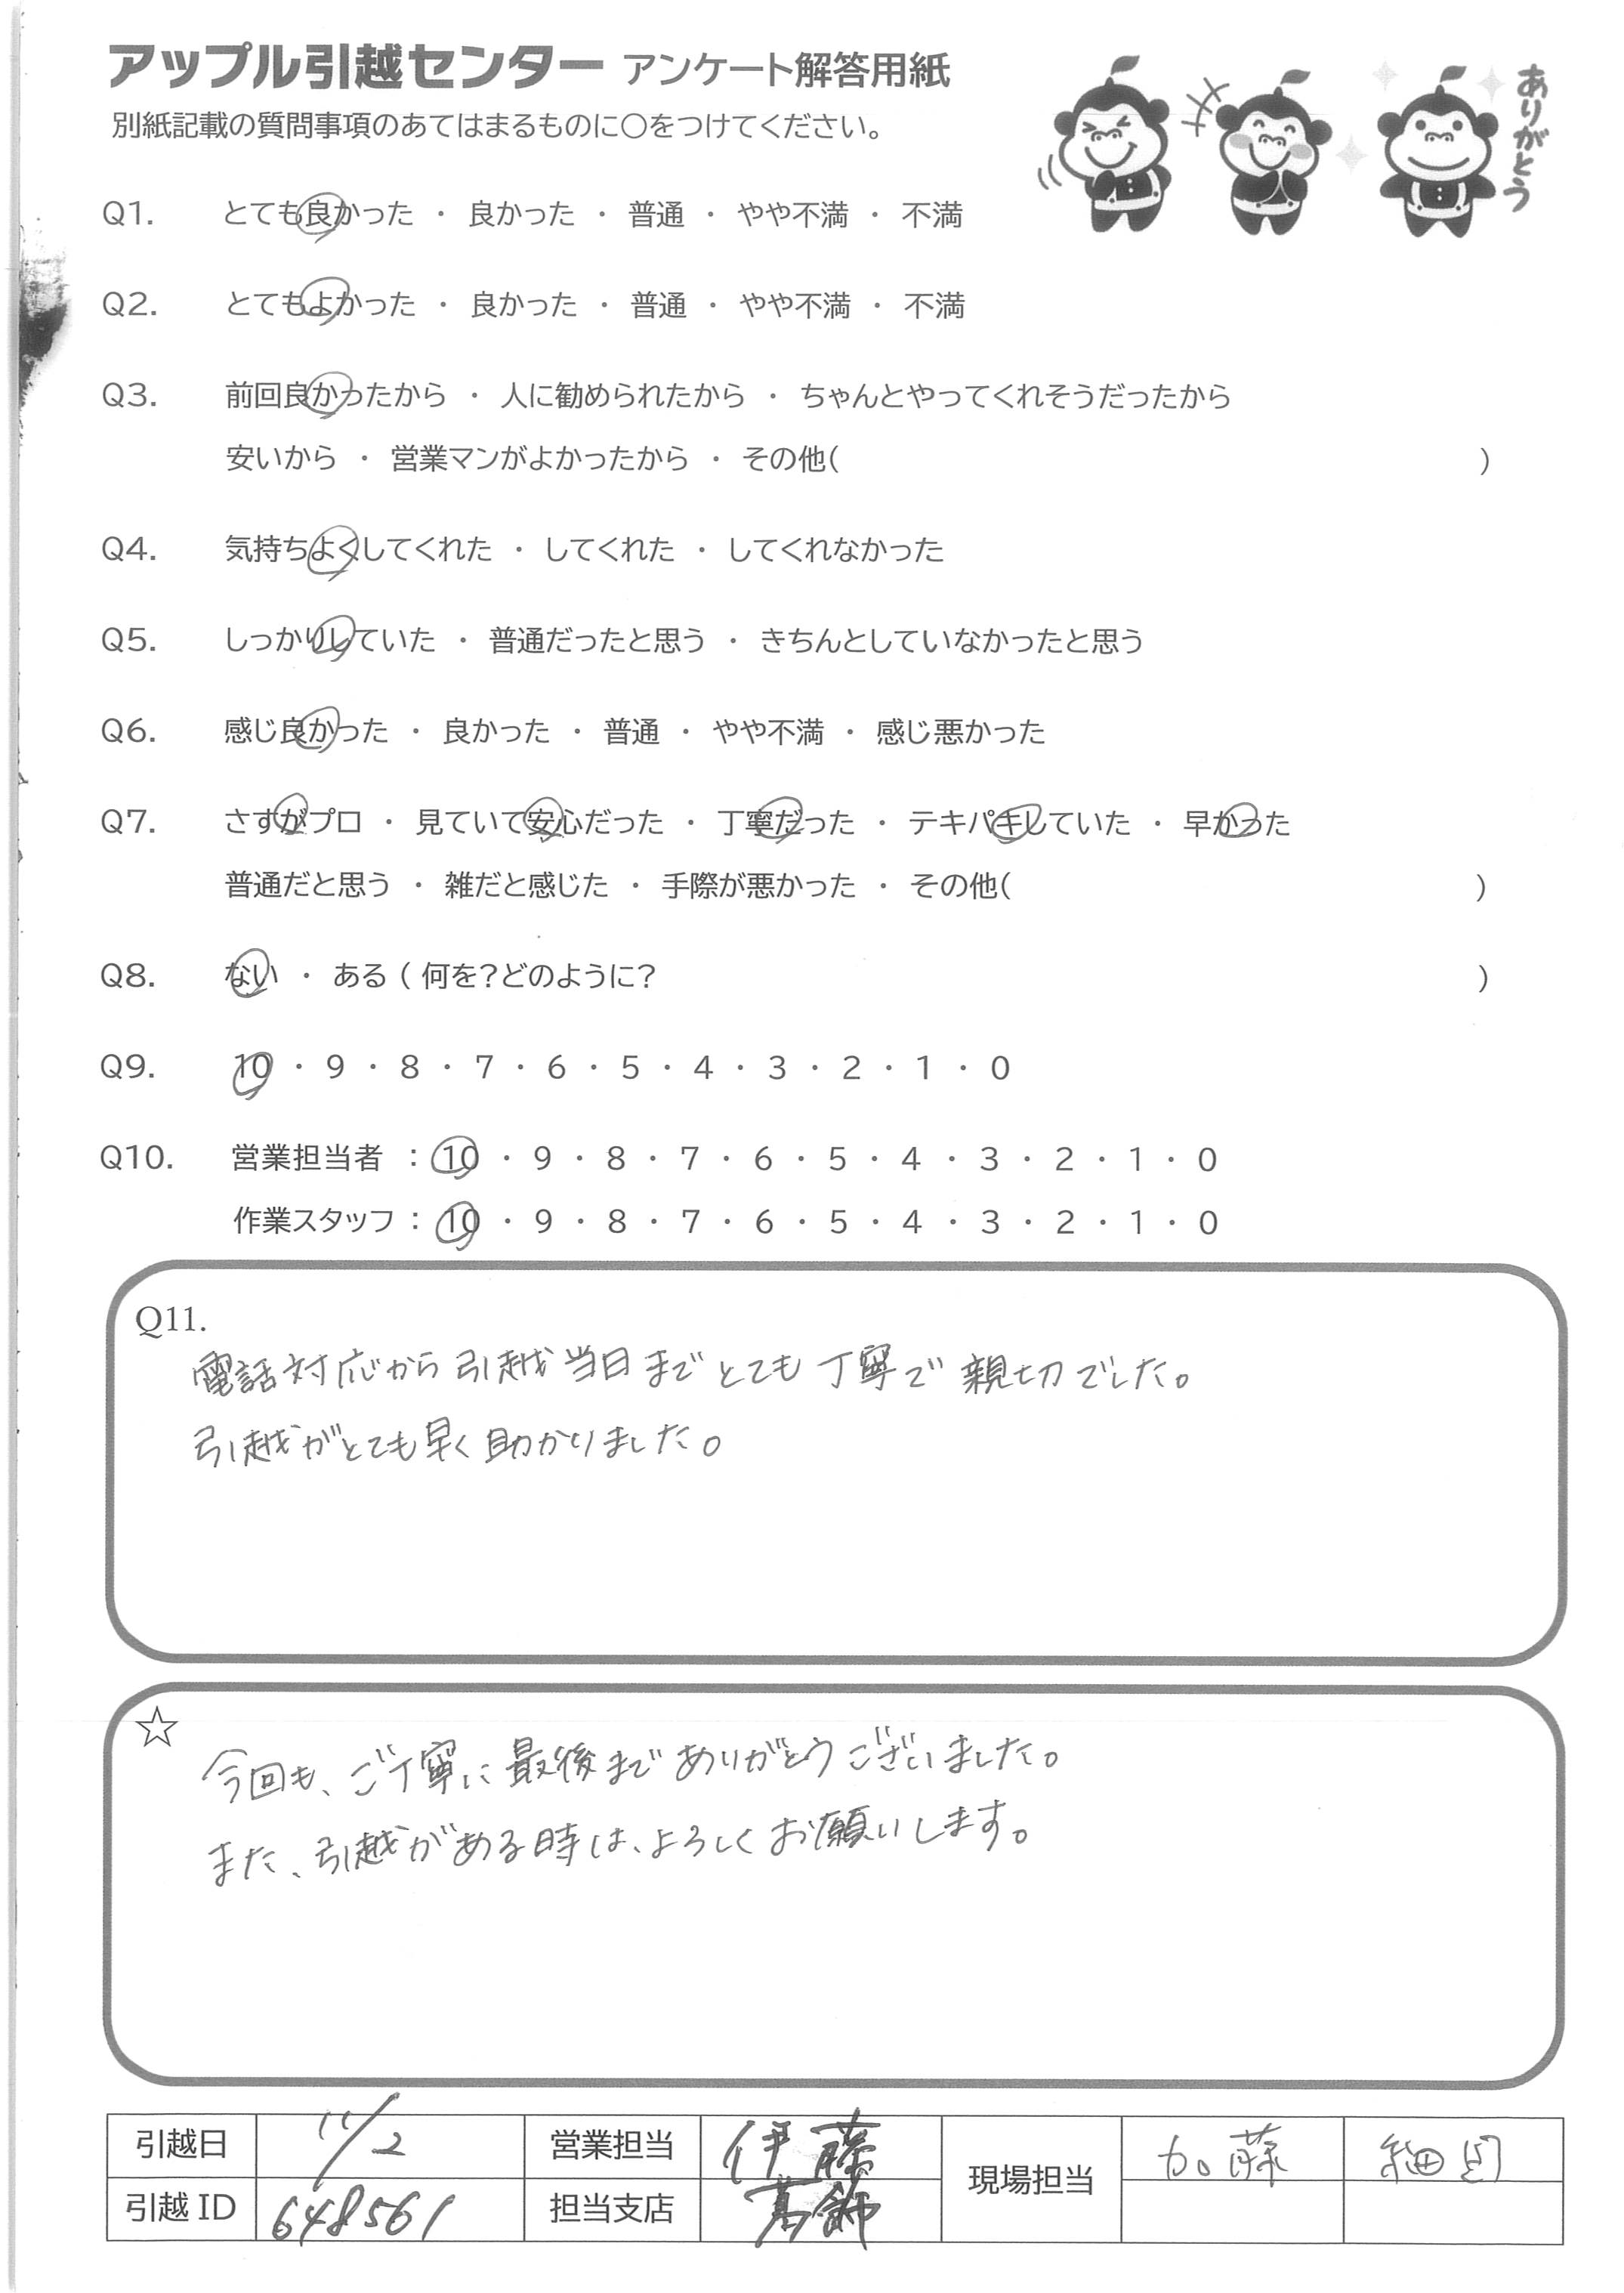 アップル引越センター アンケート解答用紙
ありがとう
別紙記載の質問事項のあてはまるものに○をつけてください。
Q1. とても良かった ・ 良かった ・ 普通 ・ やや不満 ・ 不満
Q2. とてもよかった ・ 良かった ・ 普通 ・ やや不満 ・ 不満
Q3. 前回良かったから ・ 人に勧められたから ・ ちゃんとやってくれそうだったから
安いから ・ 営業マンがよかったから ・ その他( )
Q4. 気持ちよくしてくれた ・ してくれた ・ してくれなかった
Q5. しっかりしていた ・ 普通だったと思う ・ きちんとしていなかったと思う
Q6. 感じ良かった ・ 良かった ・ 普通 ・ やや不満 ・ 感じ悪かった
Q7. さすがプロ ・ 見ていて安心だった ・ 丁寧だった ・ テキパキしていた ・ 早かった
普通だと思う ・ 雑だと感じた ・ 手際が悪かった ・ その他( )
Q8. ない ・ ある ( 何を?どのように? )
Q9. 10 ・ 9 ・ 8 ・ 7 ・ 6 ・ 5 ・ 4 ・ 3 ・ 2 ・ 1 ・ 0
Q10. 営業担当者 : 10 ・ 9 ・ 8 ・ 7 ・ 6 ・ 5 ・ 4 ・ 3 ・ 2 ・ 1 ・ 0
作業スタッフ : 10 ・ 9 ・ 8 ・ 7 ・ 6 ・ 5 ・ 4 ・ 3 ・ 2 ・ 1 ・ 0
Q11.
電話対応から引越当日までとても丁寧で親切でした。
引越がとても早く助かりました。
☆
今回も、ご丁寧に最後までありがとうございました。
また、引越がある時は、よろしくお願いします。
引越日 11/2 営業担当 伊藤 現場担当 加藤
引越ID 648561 担当支店 葛飾